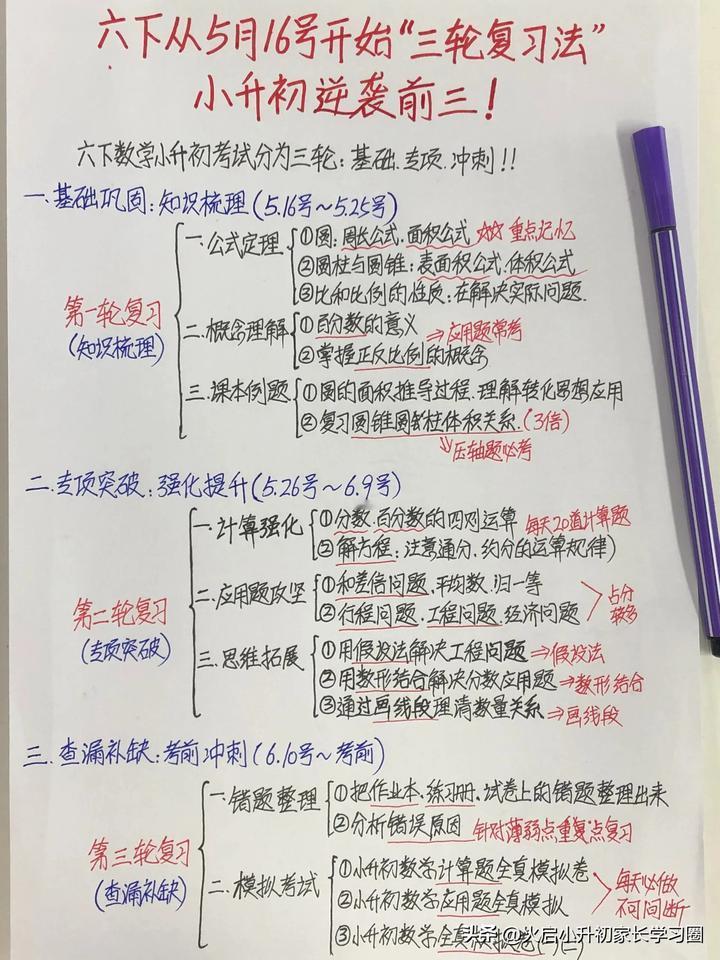 六下从5月16号开始“三轮复习法”
小升初逆袭前三!
六下数学小升初考试分为三轮:基础.专项.冲刺!!
一.基础巩固:知识梳理(5.16号~5.25号)
第一轮复习
(知识梳理)
一.公式定理
①圆:周长公式.面积公式 重点记忆
②圆柱与圆锥:表面积公式.体积公式
③比和比例的性质:在解决实际问题.
二.概念理解
①百分数的意义
②掌握正反比例的概念
⇒应用题常考
三.课本例题
①圆的面积推导过程.理解转化思想应用
②复习圆锥圆柱体积关系.(3倍)
压轴题必考
二.专项突破:强化提升(5.26号~6.9号)
第二轮复习
(专项突破)
一.计算强化
①分数.百分数的四则运算 每天20道计算题
②解方程:注意通分.约分的运算规律)
二.应用题攻坚
①和差倍问题.平均数.归一等
②行程问题.工程问题.经济问题
占分
较多
三.思维拓展
①用假设法解决工程问题⇒假设法
②用数形结合解决分数应用题⇒数形结合
③通过画线段理清数量关系⇒画线段
三.查漏补缺:考前冲刺(6.10号~考前)
第三轮复习
(查漏补缺)
一.错题整理
①把作业本.练习册.试卷上的错题整理出来
②分析错误原因 针对薄弱点重复点复习
二.模拟考试
①小升初数学计算题全真模拟卷
②小升初数学应用题全真模拟
③小升初数学全真模拟卷(一)(二)
每天必做
不可间断
头条@火启小升初家长学习圈